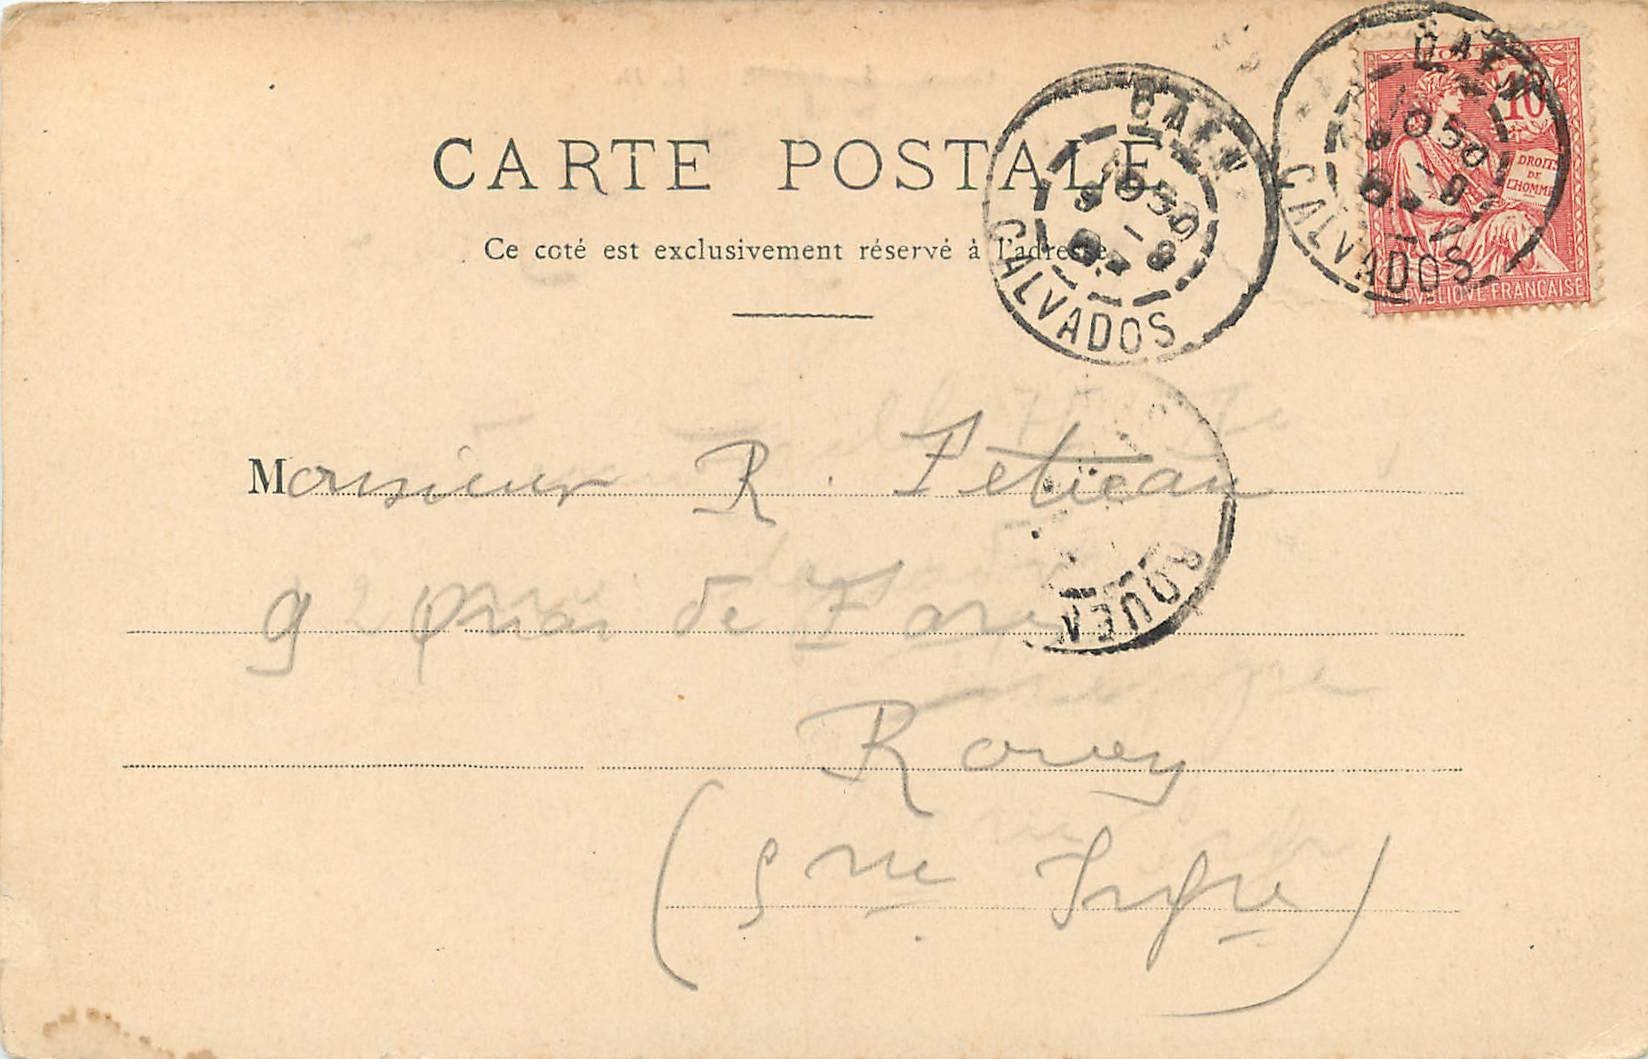 CARTE POSTALE
Ce coté est exclusivement réservé à l'adresse
CAEN
10 50
9 - 8
02
CALVADOS
CAEN
10 50
9 - 8
CALVADOS
10
DROITS
DE
L'HOMME
REPVBLIQVE FRANÇAISE
Monsieur R. Petieau
92 Quai de
ROUEN
Rouen
(Sne Infre)